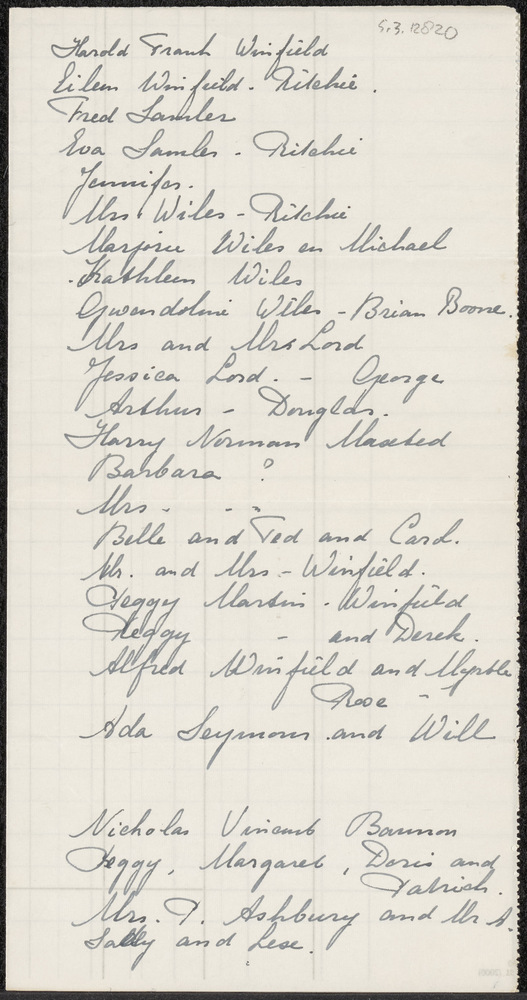 S.3.12820
Harold Frank Winfield
Eileen Winfield - Ritchie.
Fred Lawler
Eva Lawler - Ritchie
Jennifer.
Mrs Wiles - Ritchie
Marjorie Wiles en Michael
Kathleen Wiles
Gwendoline Wiles - Brian Boone.
Mrs and Mrs Lord
Jessica Lord. - George
Arthur - Douglas.
Harry Norman
Barbara ?
Mrs - - -
Belle and Ted and Carol.
Mr. and Mrs - Winfield.
Peggy Martin - Winfield
Peggy - and Derek.
Alfred Winfield and Myrtle
Rose -
Ada Seymour and Will
Nicholas Vincent Bannon
Peggy, Margaret, Doris and
Patrick.
Mrs. P. Ashbury and Mr A.
Sally and Lese.